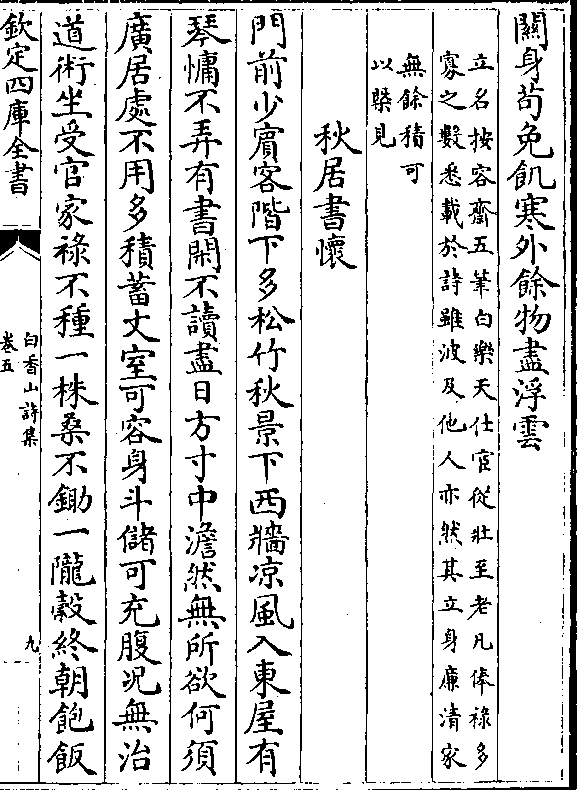 關身苟免飢寒外餘物盡浮雲
立名按容齋五筆白樂天仕宦從壯至老凡俸禄多
寡之數悉載於詩雖波及他人亦然其立身廉清家
無餘積可
以槩見
秋居書懷
門前少賓客階下多松竹秋景下西牆凉風入東屋有
琴慵不弄有書閑不讀盡日方寸中澹然無所欲何須
廣居處不用多積蓄丈室可容身斗儲可充腹况無治
道術坐受官家禄不種一株桑不鋤一隴穀終朝飽飯
欽定四庫全書
白香山詩集
卷五
九